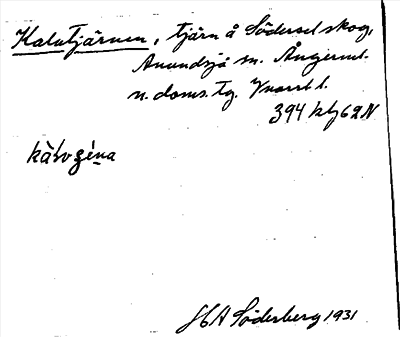 Kalatjärnen, tjärn å Södersel skog,
Anundsjö sn. Ångerml.
n. doms. tg. Yvarrt l.
394 kbf 62 N
kàtvgéna
HA Söderberg 1931